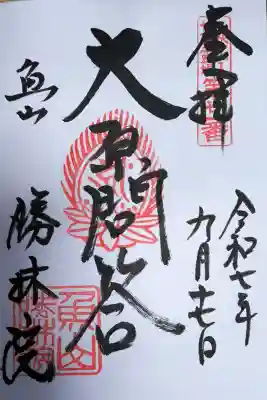 奉拝
令和七年
九月十七日
大原問答
魚山
勝林院
魚山